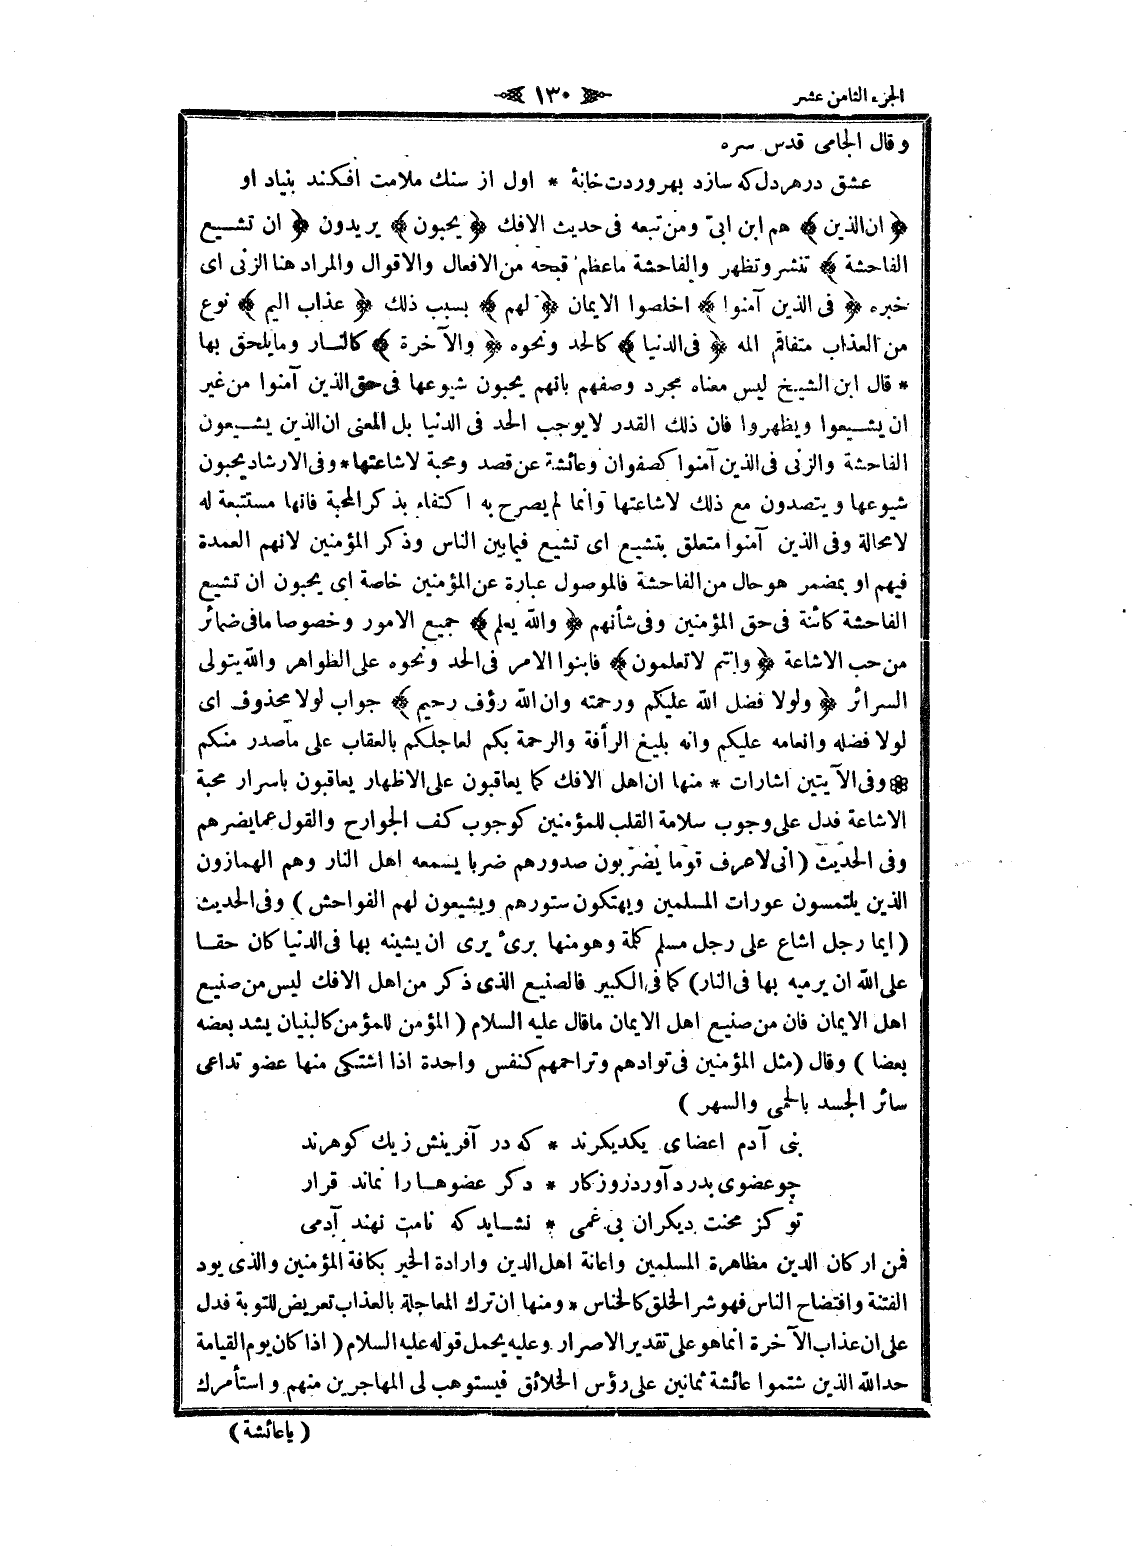 الجزء الثامن عشر
١٣٠
وقال الجامى قدس سره
عشق در هر دل كه سازد بهر وردت خانهٔ * اول از سنك ملامت افكند بنياد او
﴿ ان الذين ﴾ هم ابن ابىّ ومن تبعه فى حديث الافك ﴿ يحبون ﴾ يريدون ﴿ ان تشيع
الفاحشة ﴾ تنشر وتظهر والفاحشة ماعظم قبحه من الافعال والاقوال والمراد هنا الزنى اى
خبره ﴿ فى الذين آمنوا ﴾ اخلصوا الايمان ﴿ لهم ﴾ بسبب ذلك ﴿ عذاب اليم ﴾ نوع
من العذاب متفاقم المه ﴿ فى الدنيا ﴾ كالحد ونحوه ﴿ والآخرة ﴾ كالنار ومايلحق بها
* قال ابن الشيخ ليس معناه مجرد وصفهم بانهم يحبون شيوعها فى حق الذين آمنوا من غير
ان يشيعوا ويظهروا فان ذلك القدر لا يوجب الحد فى الدنيا بل المعنى ان الذين يشيعون
الفاحشة والزنى فى الذين آمنوا كصفوان وعائشة عن قصد ومحبة لاشاعتها * وفى الارشاد يحبون
شيوعها ويتصدون مع ذلك لاشاعتها وانما لم يصرح به اكتفاء بذكر المحبة فانها مستتبعة له
لا محالة وفى الذين آمنوا متعلق بتشيع اى تشيع فيما بين الناس وذكر المؤمنين لانهم العمدة
فيهم او بمضمر هو حال من الفاحشة فالموصول عبارة عن المؤمنين خاصة اى يحبون ان تشيع
الفاحشة كائنة فى حق المؤمنين وفى شأنهم ﴿ والله يعلم ﴾ جميع الامور وخصوصا مافى ضمائر
من حب الاشاعة ﴿ وانتم لا تعلمون ﴾ فابنوا الامر فى الحد ونحوه على الظواهر والله يتولى
السرائر ﴿ ولولا فضل الله عليكم ورحمته وان الله رؤف رحيم ﴾ جواب لولا محذوف اى
لولا فضله وانعامه عليكم وانه بليغ الرأفة والرحمة بكم لعاجلكم بالعقاب على ماصدر منكم
❁ وفى الآيتين اشارات * منها ان اهل الافك كما يعاقبون على الاظهار يعاقبون باسرار محبة
الاشاعة فدل على وجوب سلامة القلب للمؤمنين كوجوب كف الجوارح والقول عما يضرهم
وفى الحديث ( انى لاعرف قوما يضربون صدورهم ضربا يسمعه اهل النار وهم الهمازون
الذين يلتمسون عورات المسلمين ويهتكون ستورهم ويشيعون لهم الفواحش ) وفى الحديث
( ايما رجل اشاع على رجل مسلم كلمة وهو منها برىء يرى ان يشينه بها فى الدنيا كان حقا
على الله ان يرميه بها فى النار ) كما فى الكبير فالصنيع الذى ذكر من اهل الافك ليس من صنيع
اهل الايمان فان من صنيع اهل الايمان ماقال عليه السلام ( المؤمن للمؤمن كالبنيان يشد بعضه
بعضا ) وقال ( مثل المؤمنين فى توادهم وتراحمهم كنفس واحدة اذا اشتكى منها عضو تداعى
سائر الجسد بالحمى والسهر )
بنى آدم اعضاى يكديكرند * كه در آفرينش زيك كوهرند
چو عضوى بدرد آورد روزكار * دكر عضوها را نماند قرار
تو كز محنت ديكران بى غمى * نشايد كه نامت نهند آدمى
فمن اركان الدين مظاهرة المسلمين واعانة اهل الدين وارادة الخير بكافة المؤمنين والذى يود
الفتنة وافتضاح الناس فهو شر الخلق كالخناس * ومنها ان ترك المعاجلة بالعذاب تعريض للتوبة فدل
على ان عذاب الآخرة انما هو على تقدير الاصرار وعليه يحمل قوله عليه السلام ( اذا كان يوم القيامة
حد الله الذين شتموا عائشة ثمانين على رؤس الخلائق فيستوهب لى المهاجرين منهم واستأمرك
( ياعائشة )